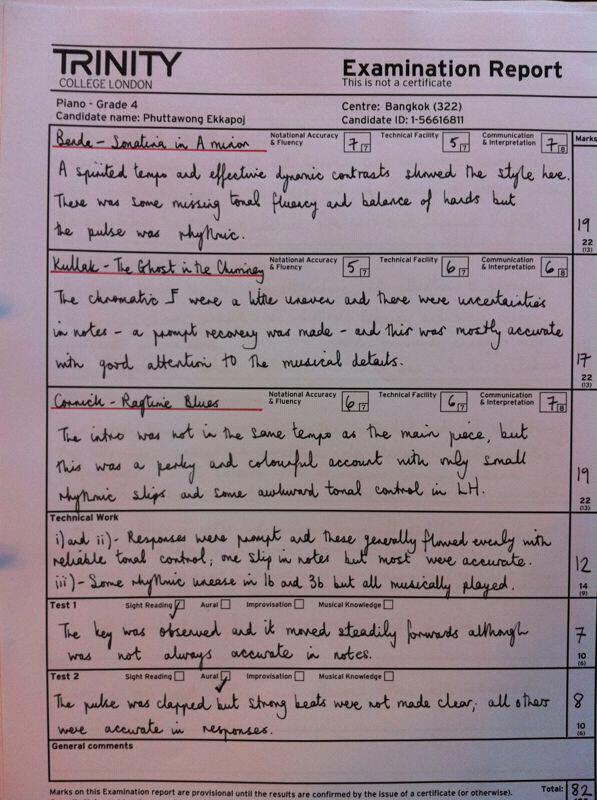 TRINITY
COLLEGE LONDON
Examination Report
This is not a certificate
Piano - Grade 4
Candidate name: Phuttawong Ekkapoj
Centre: Bangkok (322)
Candidate ID: 1-56616811
Benda - Sonatina in A minor
Notational Accuracy & Fluency 7 7
Technical Facility 5 7
Communication & Interpretation 7 8
Marks
A spirited tempo and effective dynamic contrasts showed the style here.
There was some missing tonal fluency and balance of hands but
the pulse was rhythmic.
19
22
(13)
Kullak - The Ghost in the Chimney
Notational Accuracy & Fluency 5 7
Technical Facility 6 7
Communication & Interpretation 6 8
The chromatic were a little uneven and there were uncertainties
in notes - a prompt recovery was made - and this was mostly accurate
with good attention to the musical details.
17
22
(13)
Cornick - Ragtime Blues
Notational Accuracy & Fluency 6 7
Technical Facility 6 7
Communication & Interpretation 7 8
The intro was not in the same tempo as the main piece, but
this was a perky and colourful account with only small
rhythmic slips and some awkward tonal control in LH.
19
22
(13)
Technical Work
i) and ii) - Responses were prompt and these generally flowed evenly with
reliable tonal control; one slip in notes but most were accurate.
iii) - Some rhythmic unease in 1b and 3b but all musically played.
12
14
(9)
Test 1 Sight Reading Aural Improvisation Musical Knowledge
The key was observed and it moved steadily forwards although
was not always accurate in notes.
7
10
(6)
Test 2 Sight Reading Aural Improvisation Musical Knowledge
The pulse was clapped but strong beats were not made clear; all others
were accurate in responses.
8
10
(6)
General comments
Marks on this Examination report are provisional until the results are confirmed by the issue of a certificate (or otherwise).
Total: 82